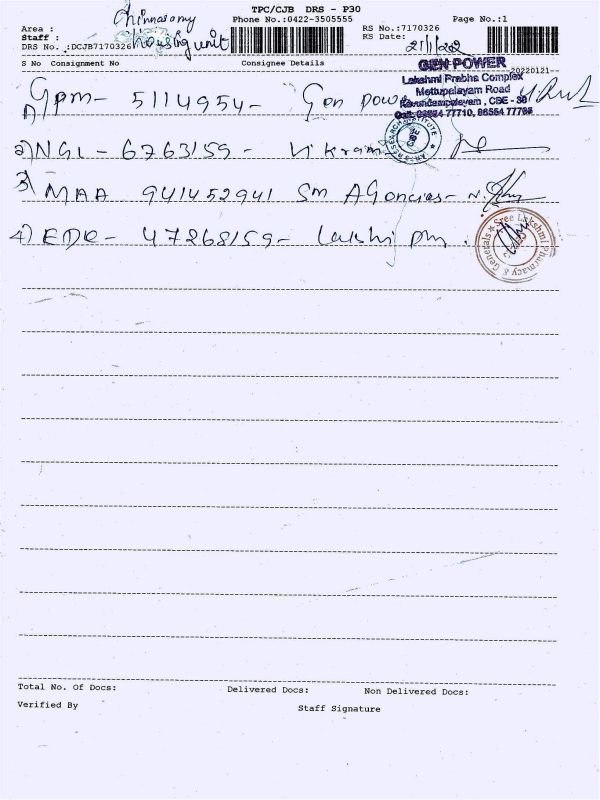 TPC/CJB DRS - P30
Area : Chinnasamy Phone No.:0422-3505555 Page No.:1
Staff : Housing unit RS No.:7170326
DRS No. :DCJB7170326 RS Date: 21/1/202
20220121
S No Consignment No Consignee Details
GEN POWER
Lakshmi Prabha Complex
Mettupalayam Road
Kavundampalayam, CBE - 30
1) GPM- 5114954- Gen Power
2) NGL- 6763159- Vikram
3) MAA 941452941 Sm AGencies-
4) EDR- 47268159- Lakshi pm.
Sree Lakshmi Pharmacy & Generals
Total No. Of Docs: Delivered Docs: Non Delivered Docs:
Verified By Staff Signature